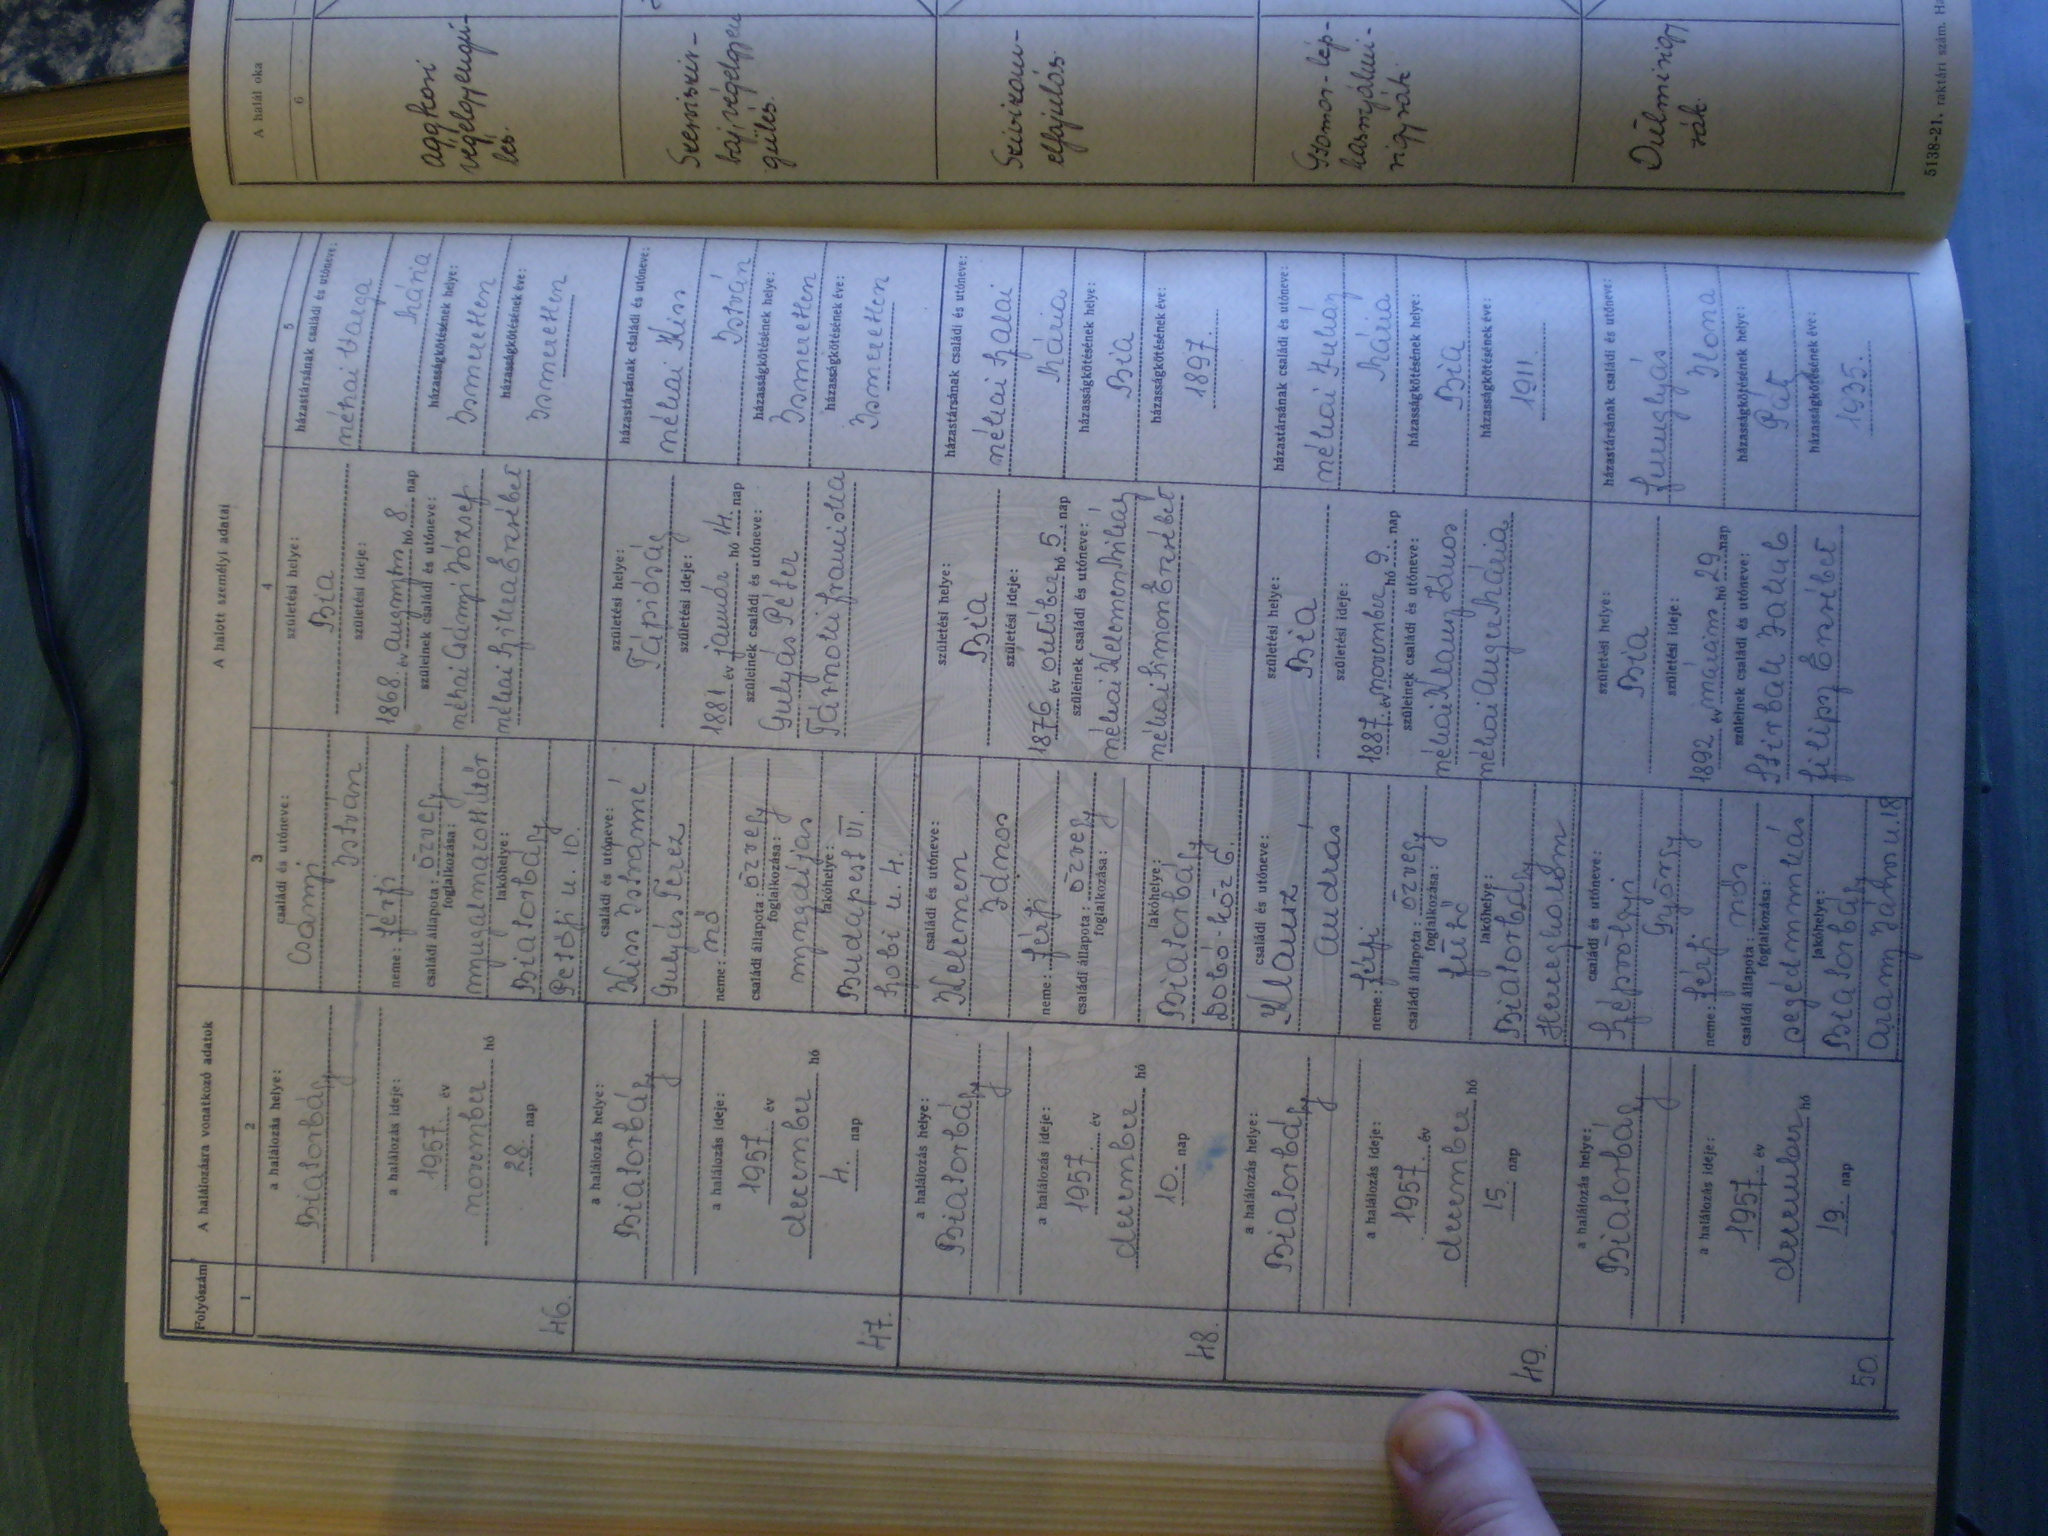 Folyószám
A halálozásra vonatkozó adatok
A halott személyi adatai
A halál oka
1
2
3
4
5
6
46.
a halálozás helye:
Biatorbágy
a halálozás ideje:
1957. év
november hó
28. nap
családi és utóneve:
Csámpi
István
neme: férfi
családi állapota: özvegy
foglalkozása:
nyugalmazott útőr
lakóhelye:
Biatorbágy
Petőfi u. 10.
születési helye:
Bia
születési ideje:
1868. év augusztus hó 8. nap
szüleinek családi és utóneve:
néhai Csámpi József
néhai Erzsébet
házastársának családi és utóneve:
néhai Varga
Mária
házasságkötésének helye:
Ismeretlen
házasságkötésének éve:
Ismeretlen
aggkori
végelgyengü-
lés.
47.
a halálozás helye:
Biatorbágy
a halálozás ideje:
1957. év
december hó
4. nap
családi és utóneve:
Kiss Istvánné
Gulyás Teréz
neme: nő
családi állapota: özvegy
foglalkozása:
nyugdíjas
lakóhelye:
Budapest VI.
u. 4.
születési helye:
Tápióság
születési ideje:
1881 év január hó 14. nap
szüleinek családi és utóneve:
Gulyás Péter
Tárnoki Franciska
házastársának családi és utóneve:
néhai Kiss
István
házasságkötésének helye:
Ismeretlen
házasságkötésének éve:
Ismeretlen
48.
a halálozás helye:
Biatorbágy
a halálozás ideje:
1957. év
december hó
10. nap
családi és utóneve:
Kelemen
János
neme: férfi
családi állapota: özvegy
foglalkozása:
lakóhelye:
Biatorbágy
Dobó-köz 6.
születési helye:
Bia
születési ideje:
1876 év október hó 5. nap
szüleinek családi és utóneve:
néhai Kelemen Mihály
néhai Simon Erzsébet
házastársának családi és utóneve:
néhai
Mária
házasságkötésének helye:
Bia
házasságkötésének éve:
1897.
Szívizom-
elfajulás.
49.
a halálozás helye:
Biatorbágy
a halálozás ideje:
1957. év
december hó
15. nap
családi és utóneve:
Klausz
András
neme: férfi
családi állapota: özvegy
foglalkozása:
fűtő
lakóhelye:
Biatorbágy
születési helye:
Bia
születési ideje:
1887. év november hó 9. nap
szüleinek családi és utóneve:
néhai Klausz János
néhai Auger Mária
házastársának családi és utóneve:
néhai Juhász
Mária
házasságkötésének helye:
Bia
házasságkötésének éve:
1911.
Gyomor-lép-
hasnyálmi-
rigy rák.
50.
a halálozás helye:
Biatorbágy
a halálozás ideje:
1957. év
december hó
19. nap
családi és utóneve:
György
neme: férfi
családi állapota: nős
foglalkozása:
segédmunkás
lakóhelye:
Biatorbágy
Arany János u. 18
születési helye:
Bia
születési ideje:
1892. év május hó 29. nap
szüleinek családi és utóneve:
Filipsz Erzsébet
házastársának családi és utóneve:
Ilona
házasságkötésének helye:
Páty
házasságkötésének éve:
1935.
Dülmirigy
rák.
5138-21. raktári szám.